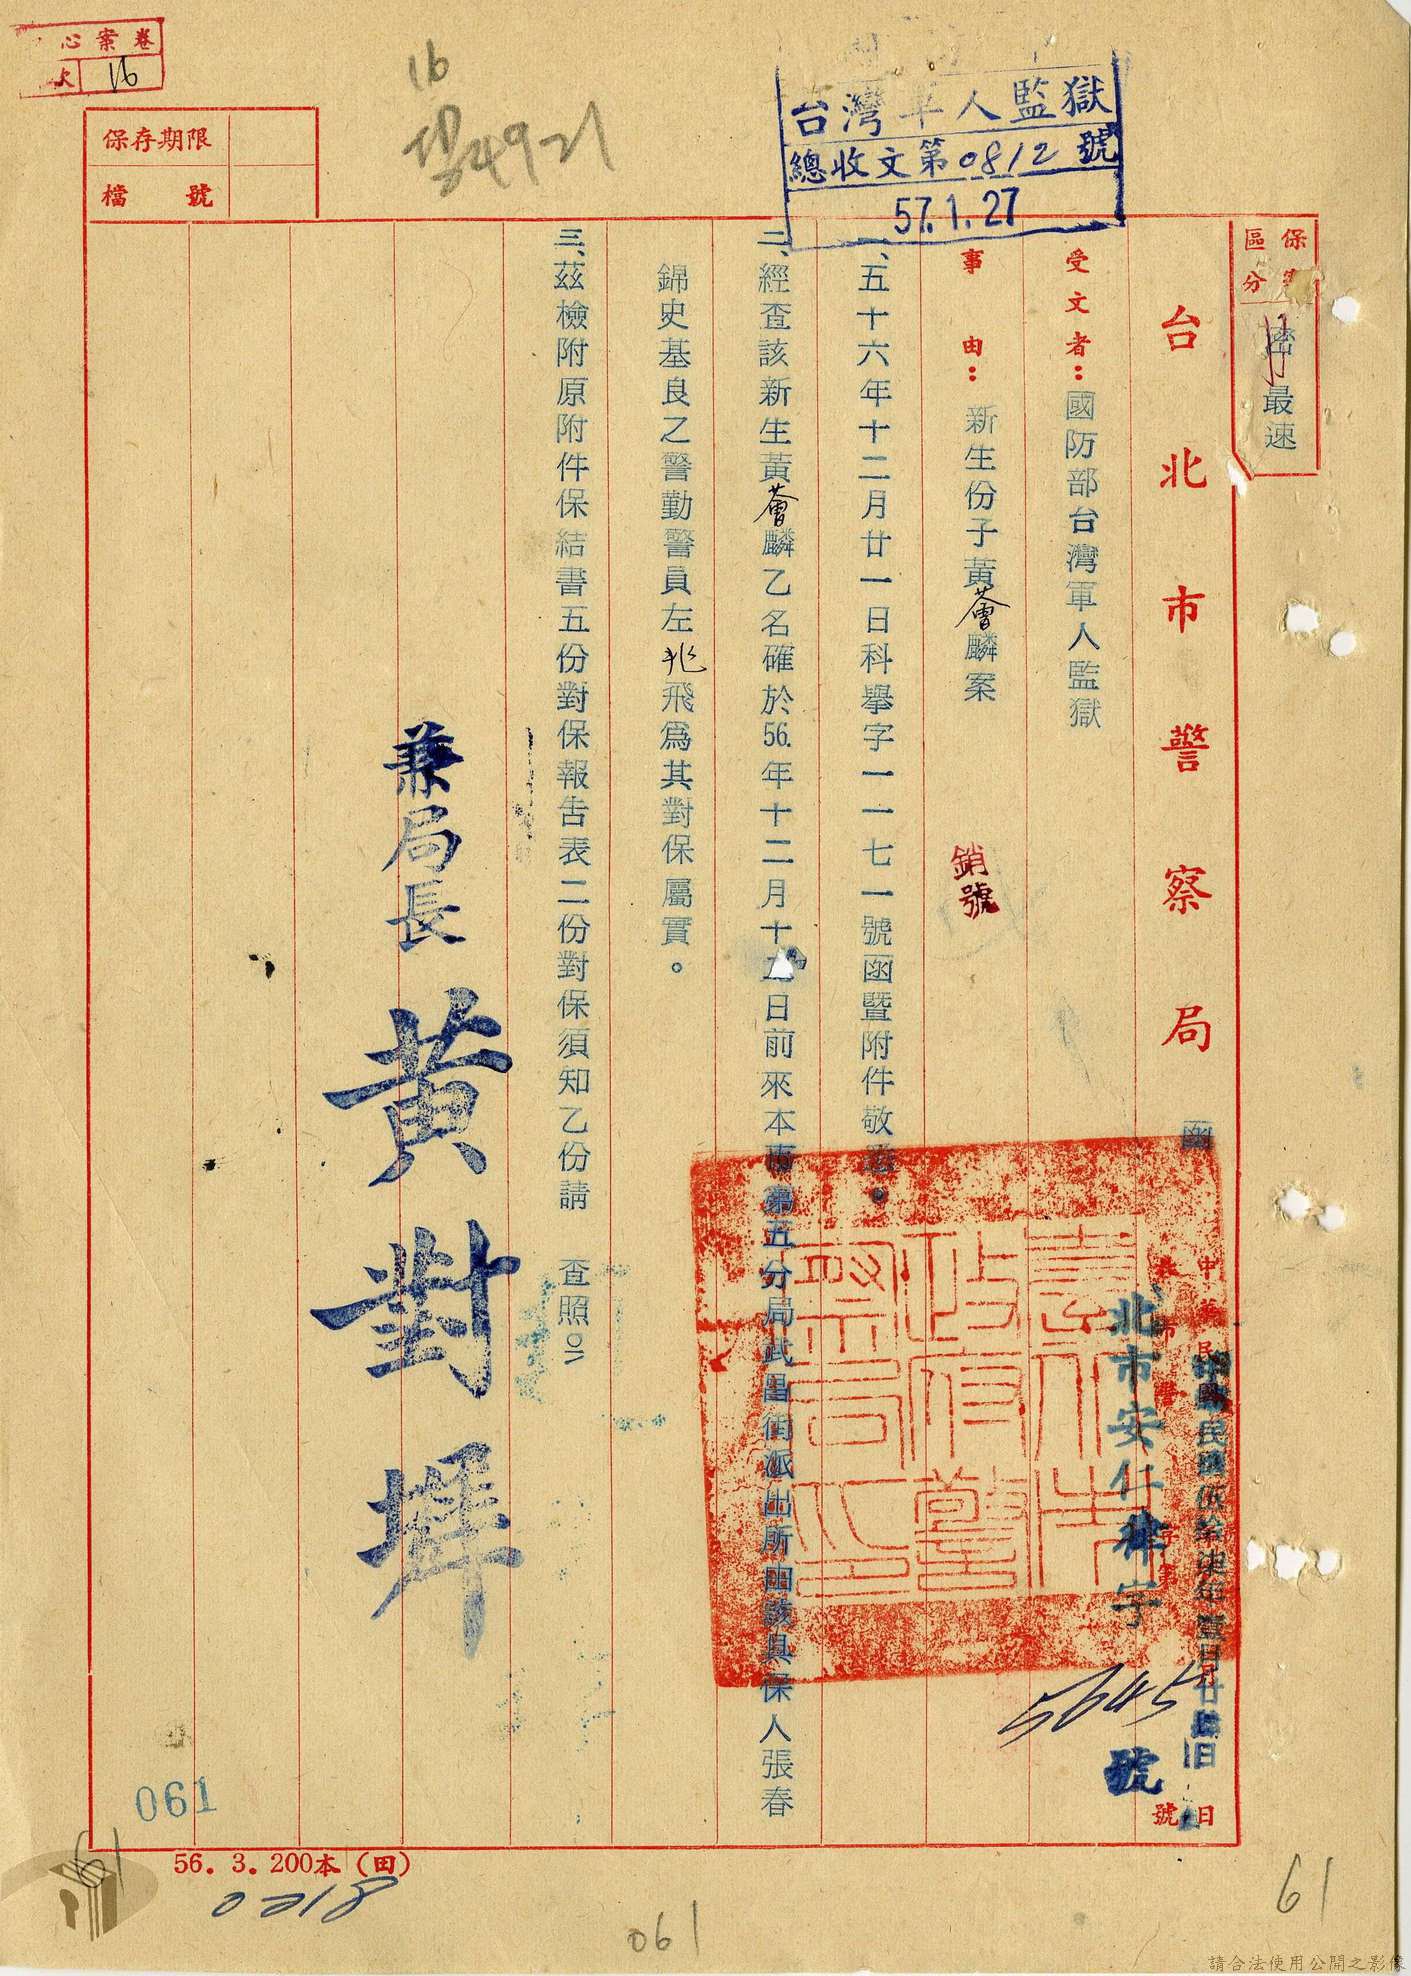 卷案心
16
16
4921
保存期限
檔號
台灣軍人監獄
總收文第0812號
57.1.27
保
區分
最速
台北市警察局
函
中華民國伍拾柒年壹月廿
日
北市安仁律字
5645
號
號
受文者：國防部台灣軍人監獄
事由：新生份子黃薈麟案
銷號
一、五十六年十二月廿一日科舉字一一七一號函暨附件敬悉。
二、經查該新生黃薈麟乙名確於56.年十二月十日前來本市第五分局武昌街派出所由該具保人張春
錦史基良之警勤警員左兆飛為其對保屬實。
三、茲檢附原附件保結書五份對保報告表二份對保須知乙份請　查照
兼局長 黃對墀
臺北市政府警察局印
061
61
56.3.200本(田)
0218
061
61
請合法使用公開之影像